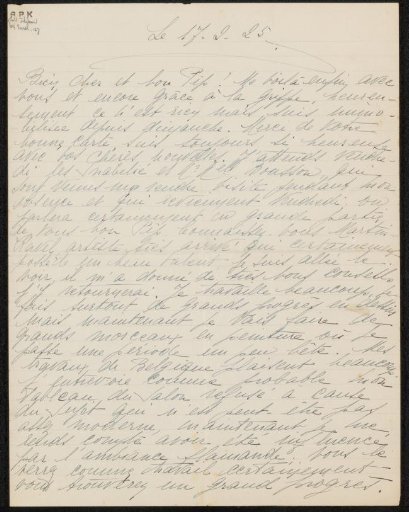 A.P.K
Le 17-2-25.
Bien cher et bon Pip! Me voilà enfin avec
vous et encore grâce à la grippe, heureu-
sement ce n'est rien mais suis immo-
bilisée depuis dimanche. Merci de votre
bonne carte, suis toujours si heureuse
avoir vos chères nouvelles. J'attends
di les et Mlle qui
sont venus me rendre visite pendant mon
absence et qui reviennent on
parlera certainement en grande partie
de vous bon Pip. vous Martin
artiste très arrivé qui certainement
un beau talent. Je suis allée le
voir il m'a donné de très bons conseils
j'y retournerai. Je travaille beaucoup, je
fais surtout de grands progrès en dessin
mais maintenant je vais faire de
grands morceaux en peinture où je
passe une période un peu bête. Mes
travaux de Belgique plaisent beaucoup
j'entrevois comme probable mon
tableau du Salon refusé à cause
du sujet qui n'est peut être pas
assez moderne maintenant je me
rends compte avoir été influencée
par l'ambiance flamande. Vous le
verrez comme travail certainement
vous trouverez un grand progrès.